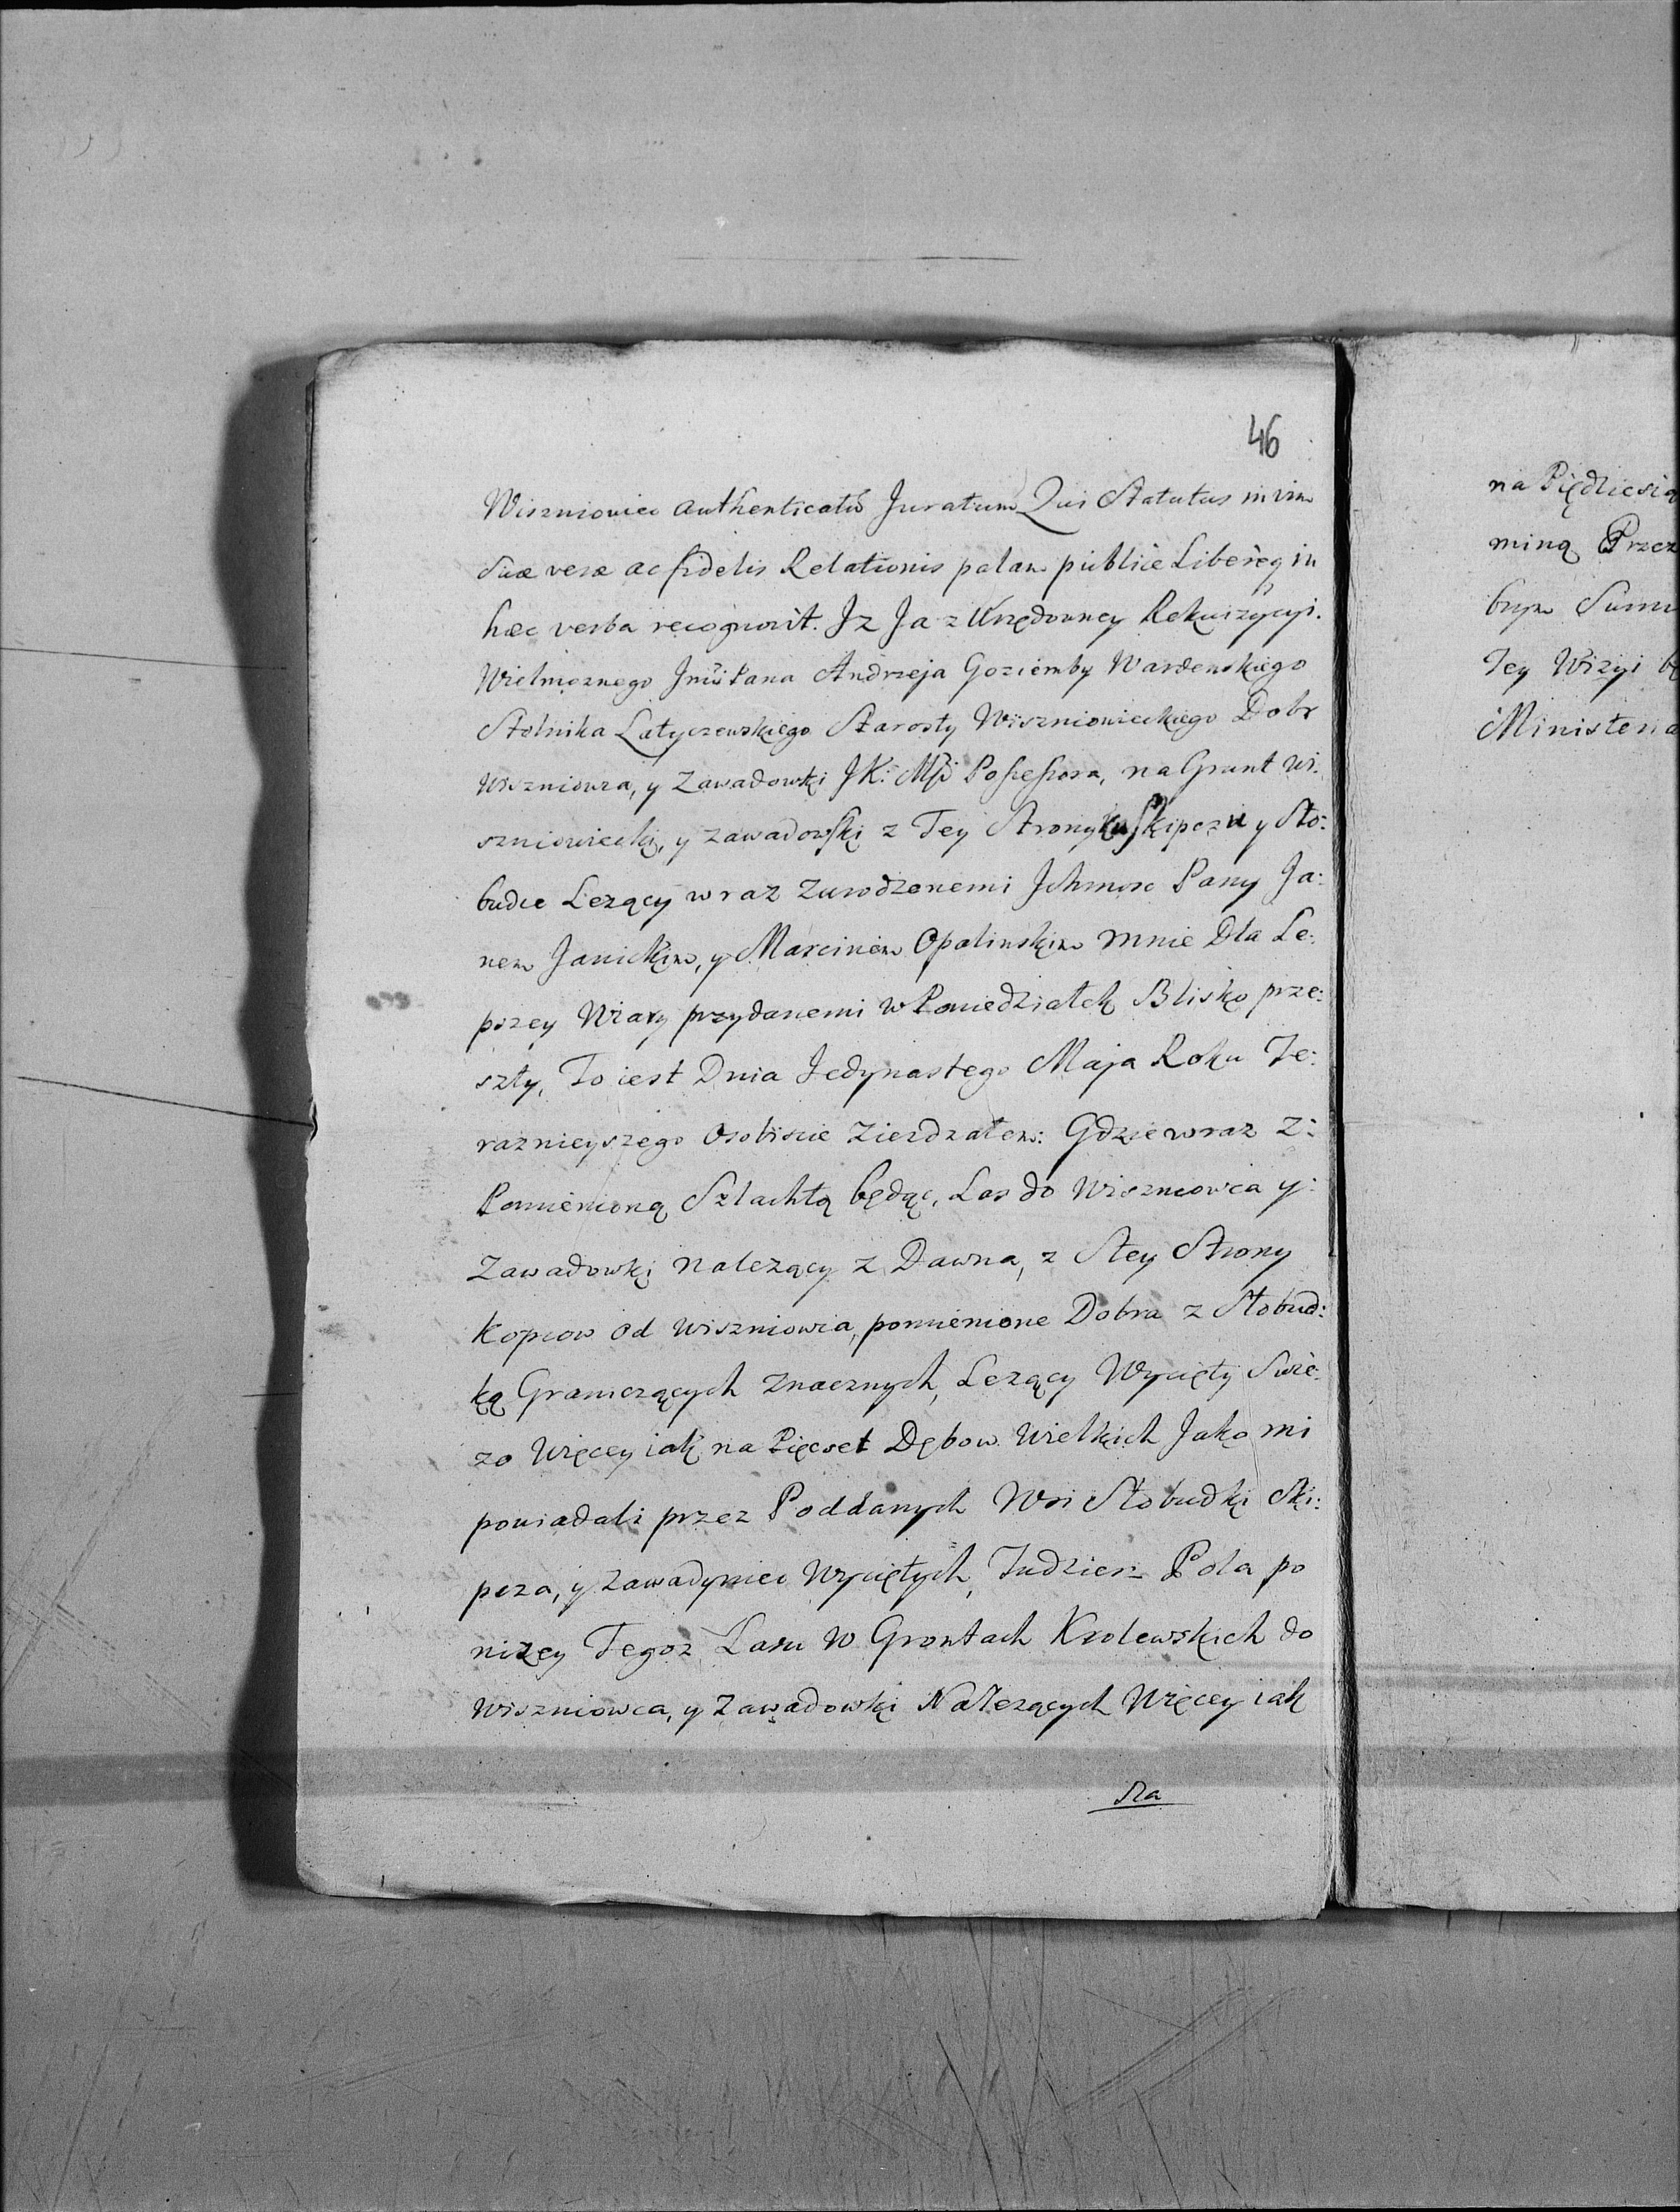 46
Wiszniowiec authenticatū Juratum Qui Statutus in vim
Suæ veræ ac fidelis Relationis palam publicè Liberèq in
hæc verba recognovit. Jz Ja z Urzędowney Rekwizycyi.
Wielmoznego Jmś Pana Andrzeja Goziemby Wardenskiego
Stolnika Latyczewskiego Starosty Wiszniowieckiego Dobr
Wiszniowca, y Zawadowki JK: Mśi Possessora, na Grunt Wi:
szniowiecki, y Zawadowski z Tey Strony Ku Skipczu y Sło:
budce Lezący wraz Zurodzonemi Jchmosc Pany Ja:
nem Janickim, y Marcinem Opalinskim mnie Dla Le:
pszey Wiary przydanemi w Poniedziałek Blisko prze:
szły, To iest Dnia Jedynastego Maja Roku Te:
raznieyszego Osobiscie Ziezdzałem: Gdzie wraz Z:
Pomienioną Szlachtą będąc, Las do Wiszniowca y:
Zawadowki Nalezący z Dawna, z Stey Strony
Kopcow od Wiszniowca, pomienione Dobra z Słobud:
ką Graniczących Znacznych, Lezący Wycięty Swie:
zo Więcey iak na Pięcset Dębow Wielkich Jako mi
powiadali przez Poddanych Wsi Słobudki Ski:
pcza, y Zawadyniec Wyciętych, Tudziesz Pola po
nizey Tegoz Lasu W Grontach Krolewskich do
Wiszniowca, y Zawadowki Nalezących Więcey iak
na
na Piędziesią
miną Przez
bnym Sum
Tey Wizyi bę
Ministeria